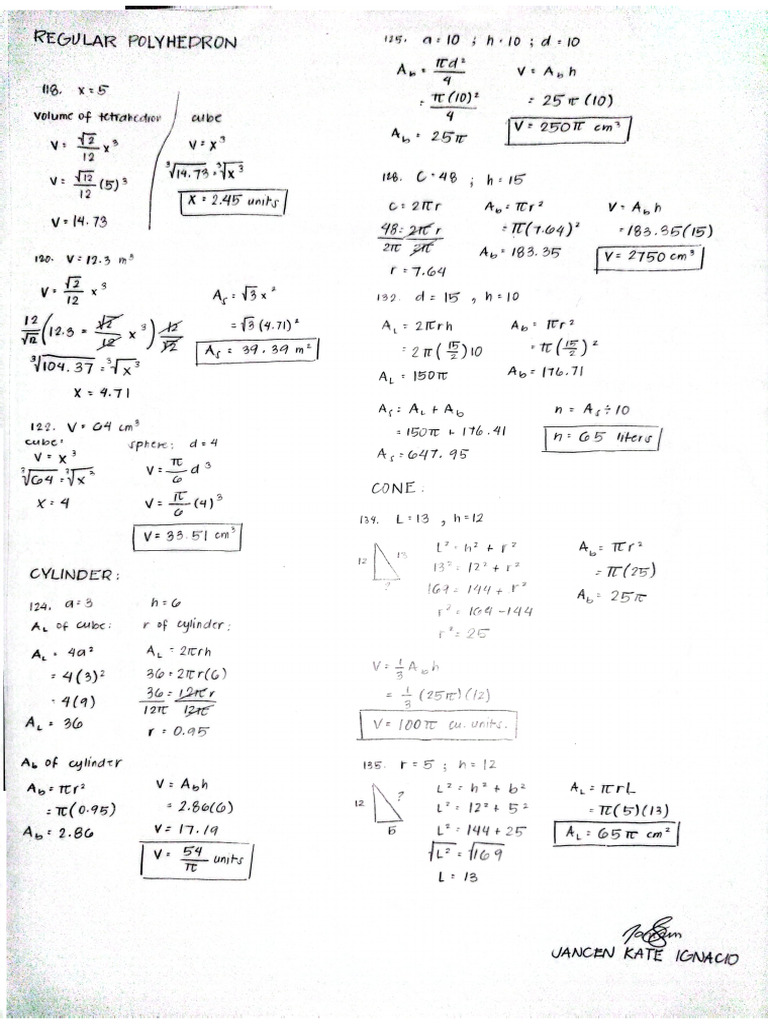 REGULAR POLYHEDRON
118. x = 5
volume of tetrahedron
V = √2/12 x³
V = √12/12 (5)³
V = 14.73
cube
V = x³
³√14.73 = ³√x³
x = 2.45 units
120. V = 12.3 m³
V = √2/12 x³
12/√12 (12.3 = √2/12 x³) 12/√2
³√104.37 = ³√x³
x = 4.71
As = √3 x²
= √3 (4.71)²
As = 39.39 m²
122. V = 64 cm³
cube:
V = x³
³√64 = ³√x³
x = 4
sphere: d = 4
V = π/6 d³
V = π/6 (4)³
V = 33.51 cm³
CYLINDER:
124. a = 3 h = 6
AL of cube:
AL = 4a²
= 4(3)²
= 4(9)
AL = 36
r of cylinder:
AL = 2πrh
36 = 2πr(6)
36/12π = 12πr/12π
r = 0.95
Ab of cylinder
Ab = πr²
= π(0.95)
Ab = 2.86
V = Abh
= 2.86(6)
V = 17.19
V = 54/π units
125. a = 10 ; h = 10 ; d = 10
Ab = πd²/4
= π(10)²/4
Ab = 25π
V = Abh
= 25π(10)
V = 250π cm³
128. C = 48 ; h = 15
C = 2πr
48/2π = 2πr/2π
r = 7.64
Ab = πr²
= π(7.64)²
Ab = 183.35
V = Abh
= 183.35(15)
V = 2750 cm³
132. d = 15 , h = 10
AL = 2πrh
= 2π(15/2)10
AL = 150π
Ab = πr²
= π(15/2)²
Ab = 176.71
As = AL + Ab
= 150π + 176.41
As = 647.95
n = As ÷ 10
n = 65 liters
CONE:
134. L = 13 , h = 12
12
13
?
L² = h² + r²
13² = 12² + r²
169 = 144 + r²
r² = 164 - 144
r² = 25
Ab = πr²
= π(25)
Ab = 25π
V = 1/3 Abh
= 1/3 (25π)(12)
V = 100π cu. units.
135. r = 5 ; h = 12
12
?
5
L² = h² + b²
L² = 12² + 5²
L² = 144 + 25
√L² = √169
L = 13
AL = πrL
= π(5)(13)
AL = 65π cm²
JANCEN KATE IGNACIO